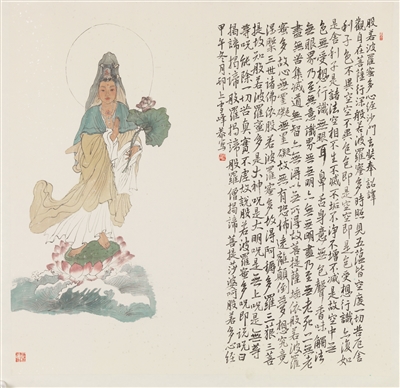 般若波羅蜜多心經沙門玄奘奉詔譯
觀自在菩薩行深般若波羅蜜多時照見五蘊皆空度一切苦厄舍
利子色不異空空不異色色即是空空即是色受想行識亦復如
是舍利子是諸法空相不生不滅不垢不淨不增不減是故空中無
色無受想行識無眼耳鼻舌身意無色聲香味觸法
無眼界乃至無意識界無無明亦無無明盡乃至無老死亦無老
死盡無苦集滅道無智亦無得以無所得故菩提薩埵依般若波羅
蜜多故心無罣礙無罣礙故無有恐怖遠離顛倒夢想究竟
涅槃三世諸佛依般若波羅蜜多故得阿耨多羅三藐三菩
提故知般若波羅蜜多是大神咒是大明咒是無上咒是無等
等咒能除一切苦真實不虛故說般若波羅蜜多咒即說咒曰
揭諦揭諦般羅揭諦般羅僧揭諦菩提沙婆訶般若多心經
甲午冬月